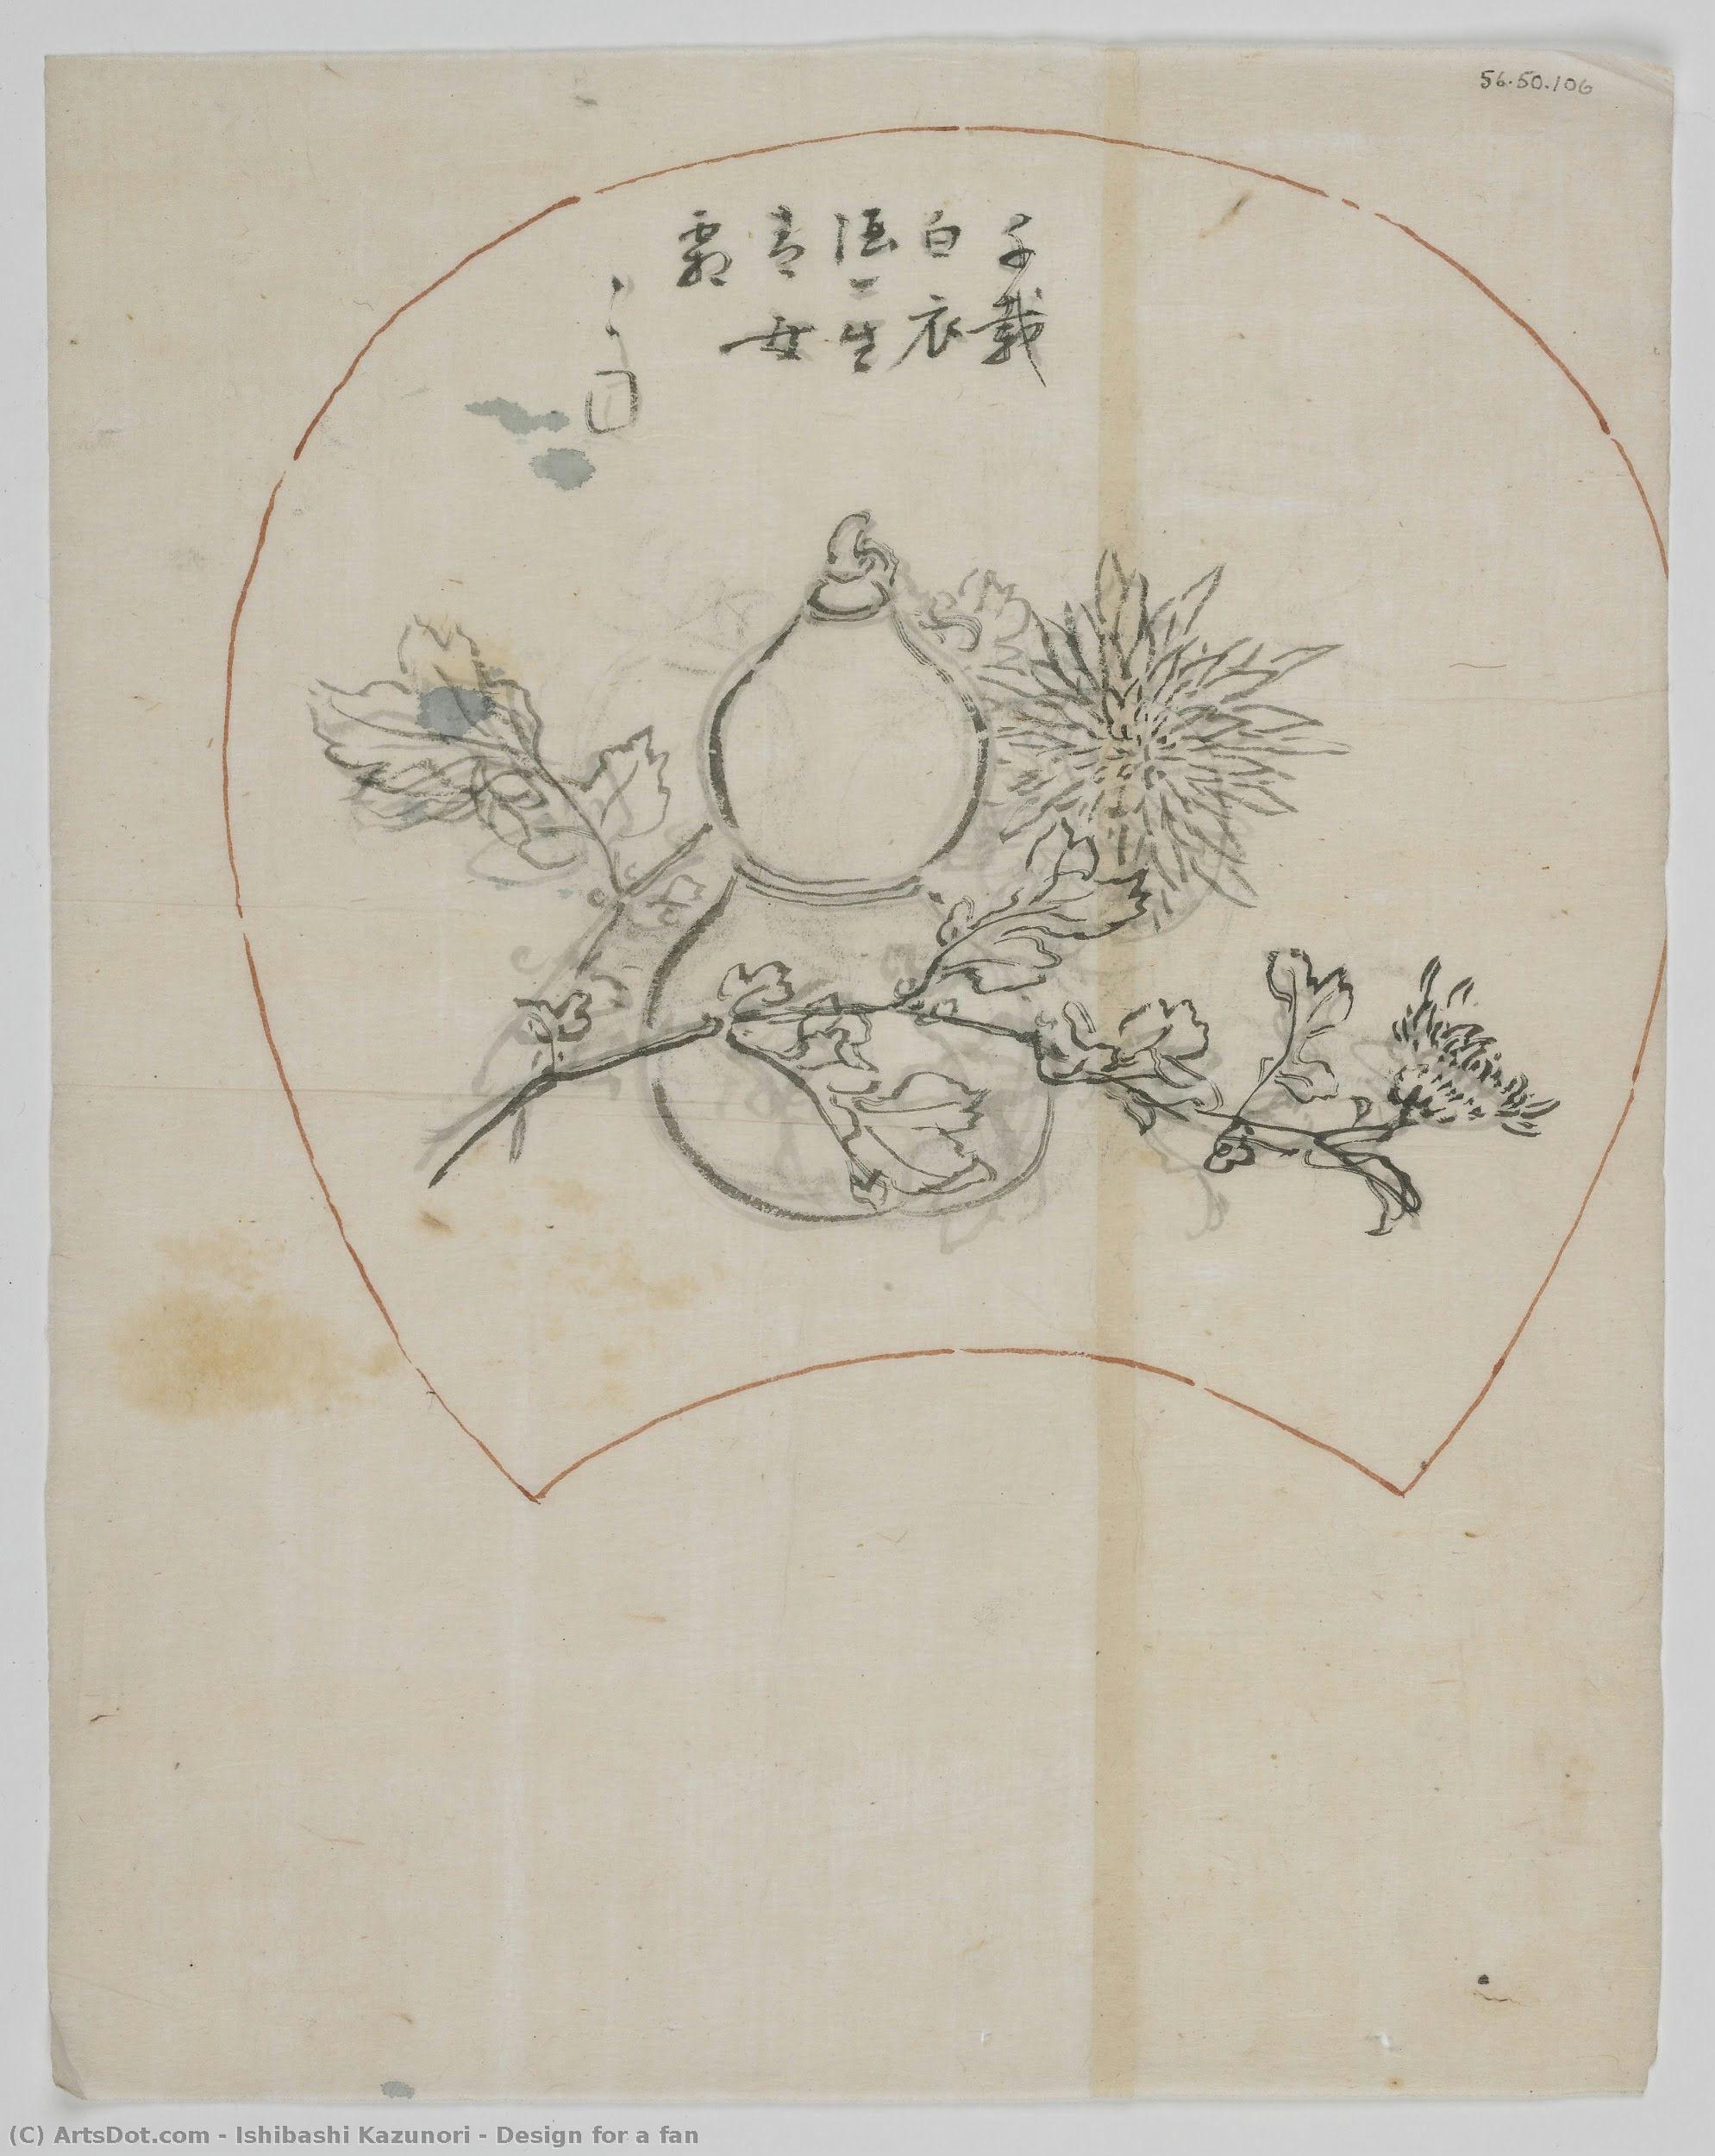 56.50.106
千載
白衣
酒一生
青女
霜
(C) ArtsDot.com - Ishibashi Kazunori - Design for a fan